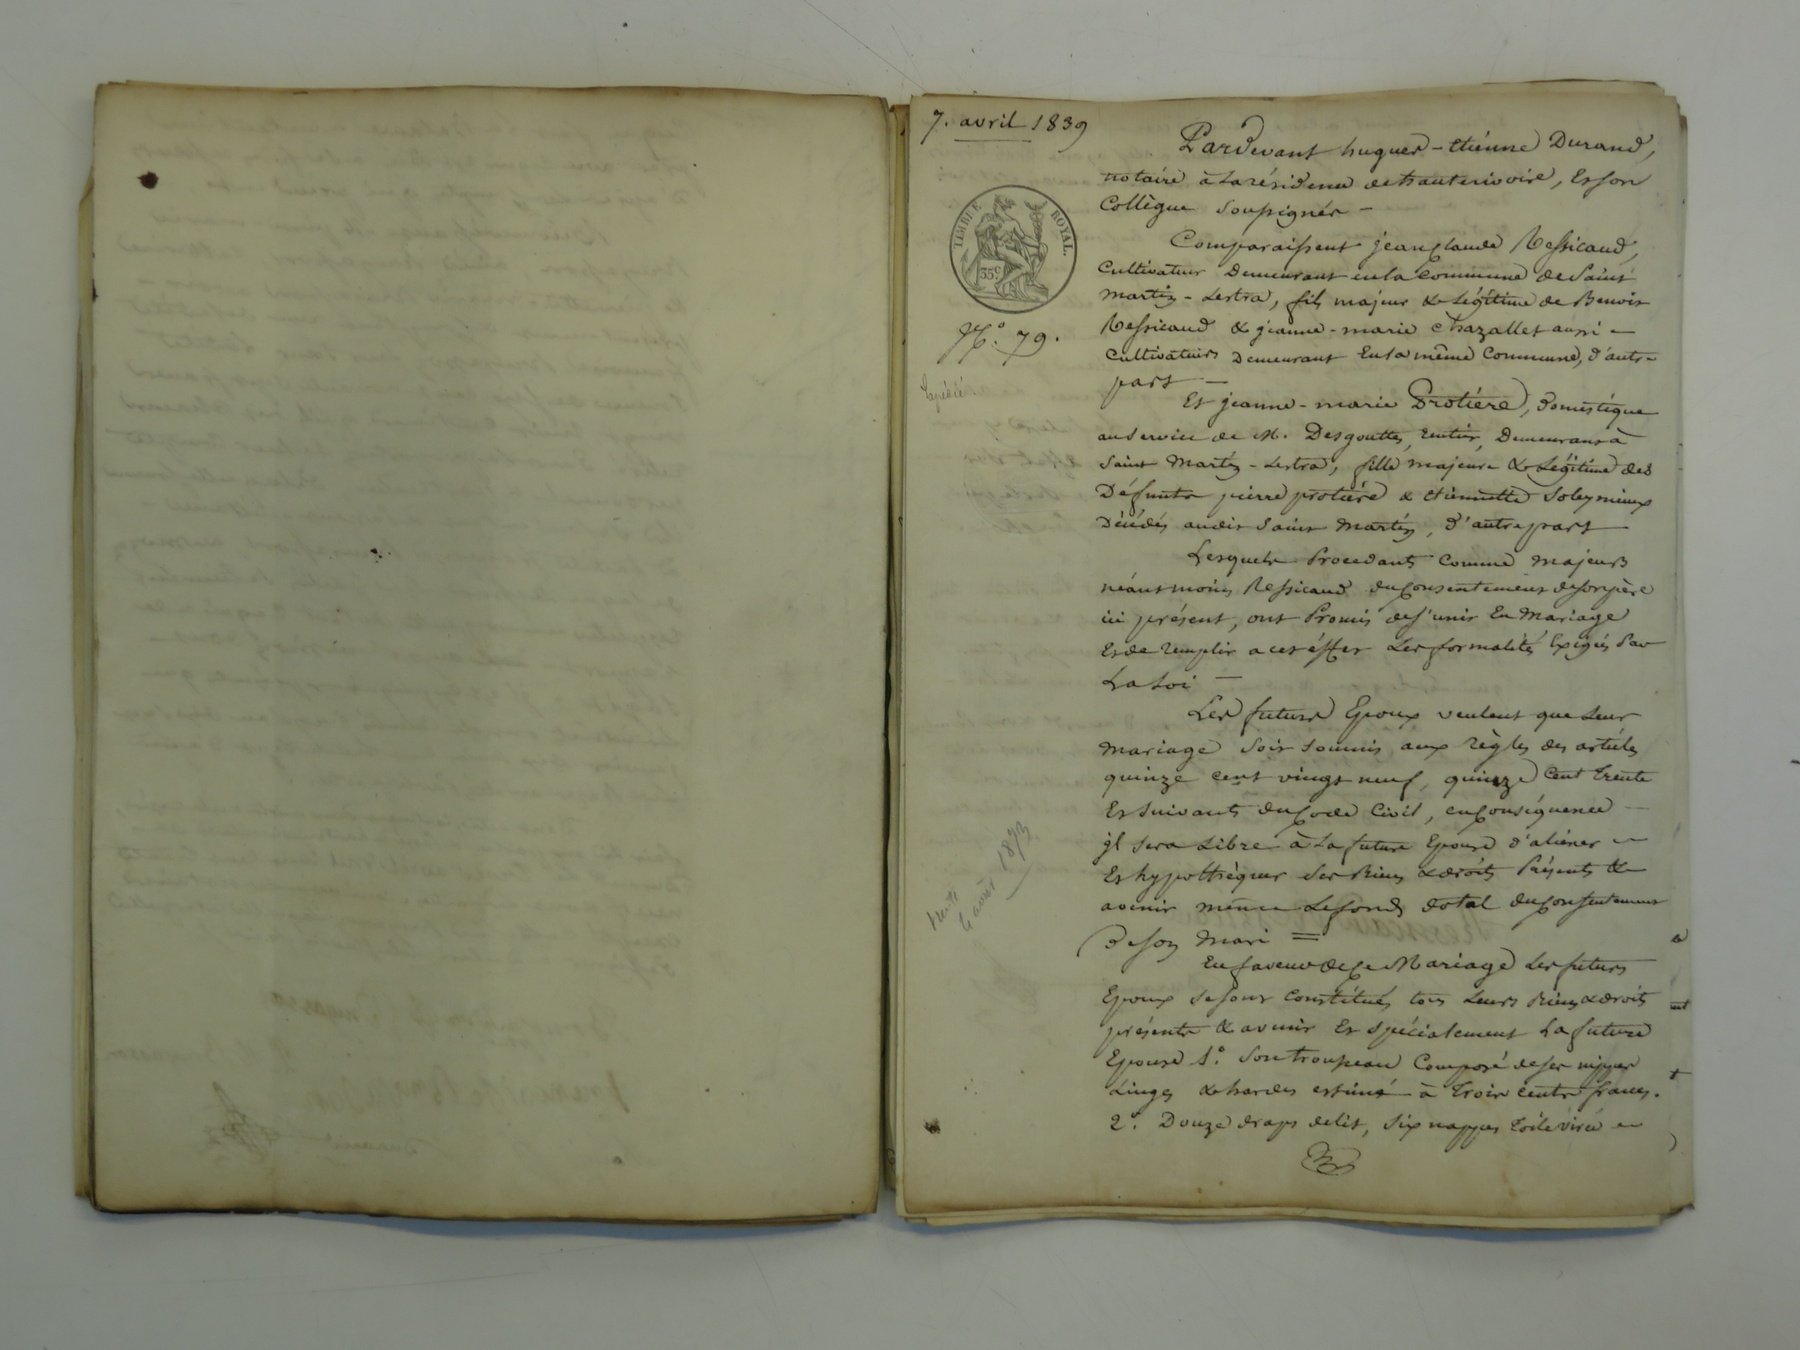 7. avril 1839
TIMBRE ROYAL.
35c
N.o 79.
Expédié.
6 août 1873
Pardevant hugues-Etiénne Durand,
notaire à la résidence de hauterivoire, et son
Collègue soussignés –
Comparaissent jean claude Ressicaud,
cultivateur demeurant en la commune de Saint
martin-Lestra, fils majeur & légitime de Benoit
Ressicaud & jeanne-marie Chazallet aussi –
cultivateurs demeurant En la même Commune, d'autre
part –
Et jeanne-marie Protiére, domestique
au service de M. Desgouttes, rentier, demeurant à
Saint Martin-Lestra, fille majeure & Légitime des
Défunts pierre protiére & etiennette Soleymieux
Décédés audit Saint Martin, d'autre part
Lesquels Procedants comme majeurs
néantmoins Ressicaud du consentement de son père
ici présent, ont Promis de s'unir En Mariage
Et de remplir a cet éffet Les formalités Exigés Par
La Loi –
Les futurs Epoux veulent que Leur
mariage soit soumis aux règles des articles
quinze cent vingt neuf, quinze Cent trente
Et suivants du Code Civil, en Conséquence –
il sera Libre à la future Epouse d'aliéner –
Et hypothéquer ses Biens & droits Présents &
avenir même Le fonds dotal du consentement
De son Mari =
En faveur de Ce Mariage Les futurs
Epoux se sont Constitués tous Leurs Biens & droits
présents & avenir Et spécialement La future
Epouse 1.o Son trousseau Composé de ses nippes
Linges & hardes estimé à trois cents francs.
2.o Douze draps de lit, six nappes toile virée –